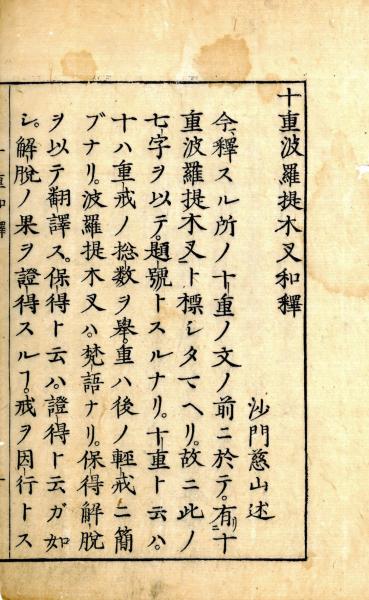 十重波羅提木叉和釋
沙門慈山述
今釋スル所ノ十重ノ文ノ前ニ於テ。有リ二十
重波羅提木叉一ト標シタマヘリ。故ニ此ノ
七字ヲ以テ。題號トスルナリ。十重ト云ハ。
十ハ重戒ノ捴数ヲ舉。重ハ後ノ輕戒ニ簡
ブナリ。波羅提木叉ハ。梵語ナリ。保得解脫
ヲ以テ翻譯ス。保得ト云ハ。證得ト云ガ如
シ。解脫ノ果ヲ證得スルヿ。戒ヲ因行トス
十重和釋
一